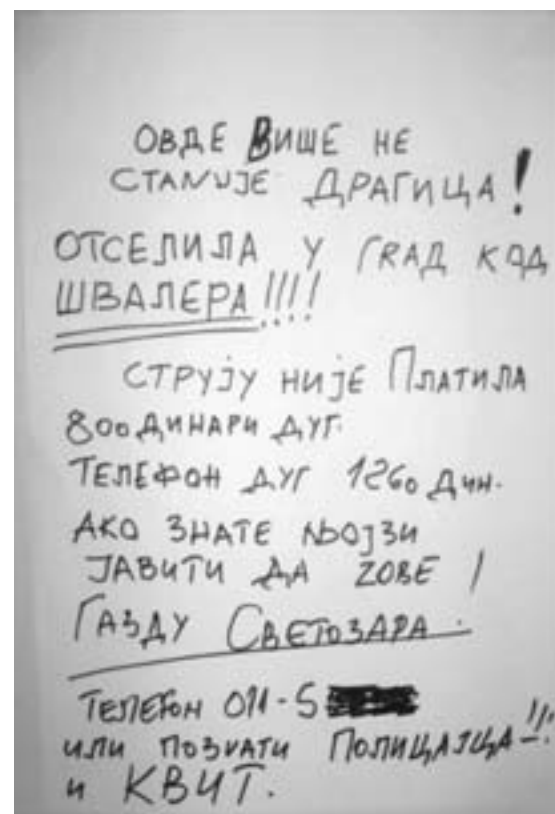 ОВДЕ ВИШЕ НЕ
СТАNUЈЕ ДРАГИЦА!
ОТСЕЛИЛА У ГRАД КОД
ШВАЛЕРА!!!!
СТРУЈУ НИЈЕ ПЛАТИЛА
800 ДИНАРИ ДУГ.
ТЕЛЕФОН ДУГ 1260 ДИН.
АКО ЗНАТЕ ЊОЈЗИ
ЈАВИТИ ДА ZОВЕ!
ГАЗДУ СВЕТОЗАРА.
ТЕЛЕФОН 011-5
ИЛИ ПОЗVАТИ ПОЛИЦАЈЦА-!!!
И КВИТ.